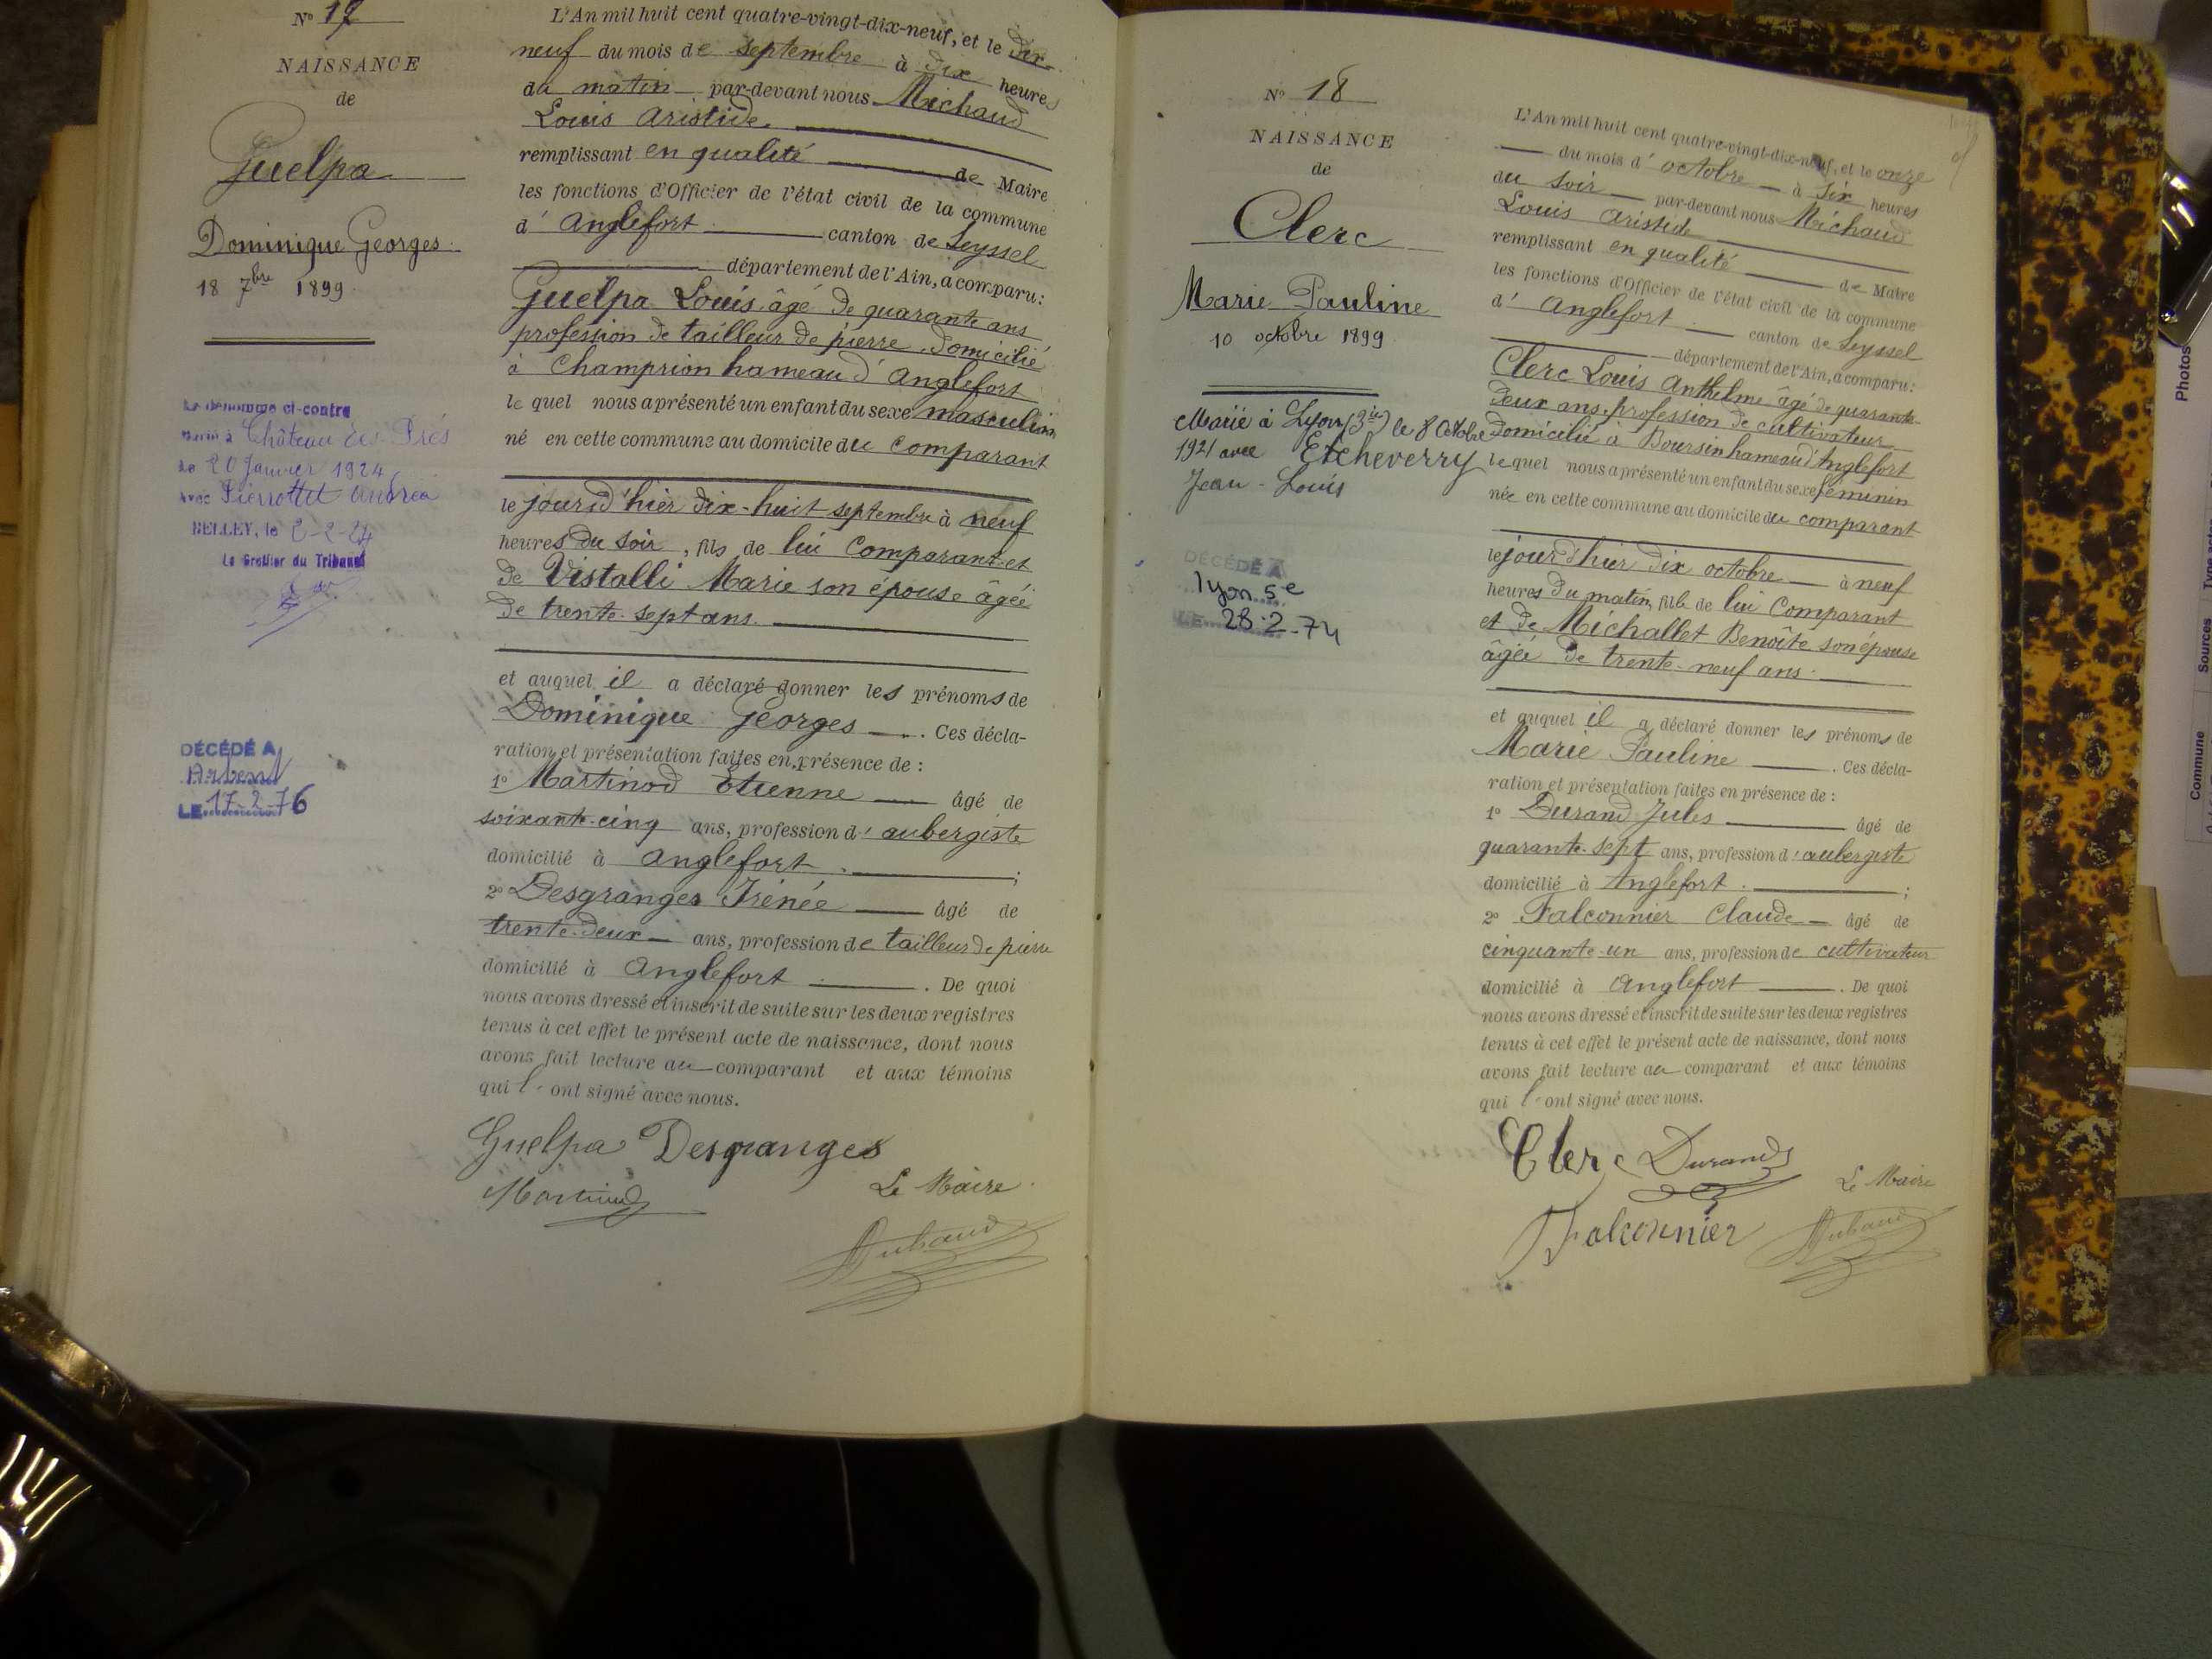 N° 17
NAISSANCE
de
Guelpa
Dominique Georges
18 7bre 1899
Le dénommé ci-contre
marié à Château des Prés
le 20 Janvier 1924
avec Pierrottet Andréa
BELLEY, le 2-2-24
Le Greffier du Tribunal
DÉCÉDÉ A
Arbent
LE 17-2-76
L'An mil huit cent quatre-vingt-dix-neuf, et le dix
neuf du mois de septembre à dix heures
du matin par-devant nous Michaud
Louis Aristide
remplissant en qualité de Maire
les fonctions d'Officier de l'état civil de la commune
d' Anglefort canton de Seyssel
département de l'Ain, a comparu:
Guelpa Louis âgé de quarante ans
profession de tailleur de pierre domicilié
à Champrion hameau d'Anglefort
lequel nous a présenté un enfant du sexe masculin
né en cette commune au domicile du comparant
le jourd'hier dix-huit septembre à neuf
heures du soir, fils de lui comparant et
de Vistalli Marie son épouse âgée
de trente-sept ans.
et auquel il a déclaré donner les prénoms de
Dominique Georges . Ces décla-
ration et présentation faites en présence de :
1° Martinod Etienne âgé de
soixante-cinq ans, profession d'aubergiste
domicilié à Anglefort ;
2° Desgranges Irénée âgé de
trente-deux ans, profession de tailleur de pierre
domicilié à Anglefort . De quoi
nous avons dressé et inscrit de suite sur les deux registres
tenus à cet effet le présent acte de naissance, dont nous
avons fait lecture au comparant et aux témoins
qui l'ont signé avec nous.
Guelpa Desgranges
Martinod Le Maire
N° 18
NAISSANCE
de
Clerc
Marie Pauline
10 octobre 1899
Mariée à Lyon (3ie) le 8 Octobre
1921 avec Etcheverry
Jean-Louis
DÉCÉDÉ A
Lyon 5e
LE 28-2-74
L'An mil huit cent quatre-vingt-dix-neuf, et le onze
du mois d'octobre à six heures
du soir par-devant nous Michaud
Louis Aristide
remplissant en qualité de Maire
les fonctions d'Officier de l'état civil de la commune
d' Anglefort canton de Seyssel
département de l'Ain, a comparu:
Clerc Louis Anthelme âgé de quarante
deux ans, profession de cultivateur
domicilié à Boursin hameau d'Anglefort
lequel nous a présenté un enfant du sexe féminin
née en cette commune au domicile du comparant
le jourd'hier dix octobre à neuf
heures du matin, fille de lui comparant
et de Michallet Benoîte son épouse
âgée de trente-neuf ans.
et auquel il a déclaré donner les prénoms de
Marie Pauline . Ces décla-
ration et présentation faites en présence de :
1° Durand Jules âgé de
quarante-sept ans, profession d'aubergiste
domicilié à Anglefort. ;
2° Falconnier Claude âgé de
cinquante-un ans, profession de cultivateur
domicilié à Anglefort . De quoi
nous avons dressé et inscrit de suite sur les deux registres
tenus à cet effet le présent acte de naissance, dont nous
avons fait lecture au comparant et aux témoins
qui l'ont signé avec nous.
Clerc Durand
Le Maire
Falconnier
Photos
Commune Sources Type actes